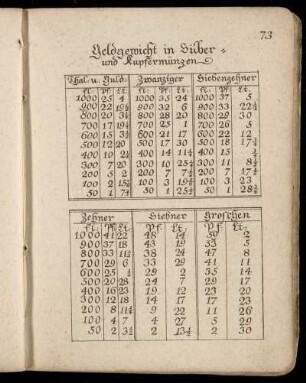 73
Geldgewicht in Silber-
und Kupfermünzen
Thal: u: Guld: Zwanziger Siebenzehner
fl: Pf: Lt: fl: Pf: Lt. fl: Pf: Lt:
1000 25 4 1000 35 24 1000 37 5
900 22 19½ 900 32 6 900 33 22½
800 20 3¼ 800 28 20 800 29 30
700 17 19¼ 700 25 1 700 26 5
600 15 3½ 600 21 17 600 22 12
500 12 20 500 17 30 500 18 17½
400 10 2¼ 400 14 11¼ 400 15
300 7 20 300 10 25½ 300 11 8½
200 5 2 200 7 7¼ 200 7 17½
100 2 15¾ 100 3 19¼ 100 3 23
50 1 7¾ 50 1 25¾ 50 1 28¾
Zehner Siebner Groschen
fl: Pf: Lt. Pf: Lt: Pf: Lt:
1000 41 22 48 14 59 2
900 37 18 43 19 53 5
800 33 11½ 38 24 47 8
700 29 6 33 29 41 11
600 25 29 2 35 14
500 20 28 24 7 29 17
400 16 23 19 12 23 20
300 12 18 14 17 17 23
200 8 11¼ 9 22 11 26
100 4 7 4 27 5 29
50 2 3½ 2 13½ 2 30